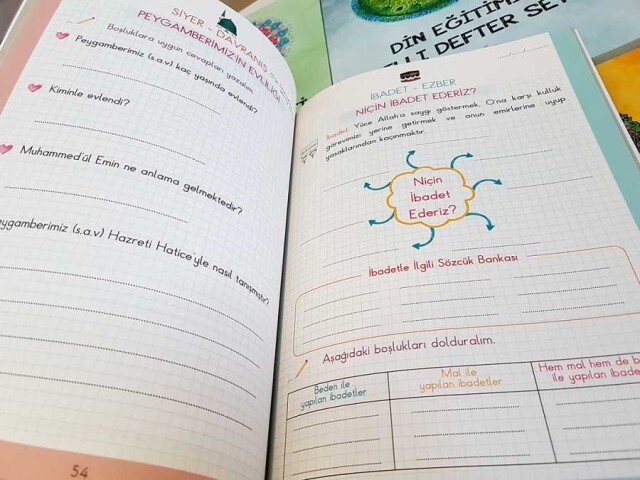 SİYER - DAVRANIŞ
PEYGAMBERİMİZİN EVLİLİĞİ
Boşluklara uygun cevapları yazalım.
Peygamberimiz (s.a.v) kaç yaşında evlendi?
Kiminle evlendi?
Muhammed'ül Emin ne anlama gelmektedir?
eygamberimiz (s.a.v) Hazreti Hatice'yle nasıl tanışmıştır?
54
DİN EĞİTİMİ
Lİ DEFTER SE
İBADET - EZBER
NİÇİN İBADET EDERİZ?
İbadet: Yüce Allah'a saygı göstermek, O'na karşı kulluk
görevimizi yerine getirmek ve onun emirlerine uyup
yasaklarından kaçınmaktır.
Niçin
İbadet
Ederiz?
İbadetle İlgili Sözcük Bankası
Aşağıdaki boşlukları dolduralım.
Beden ile
yapılan ibadetler
Mal ile
yapılan ibadetler
Hem mal hem de b
ile yapılan ibade